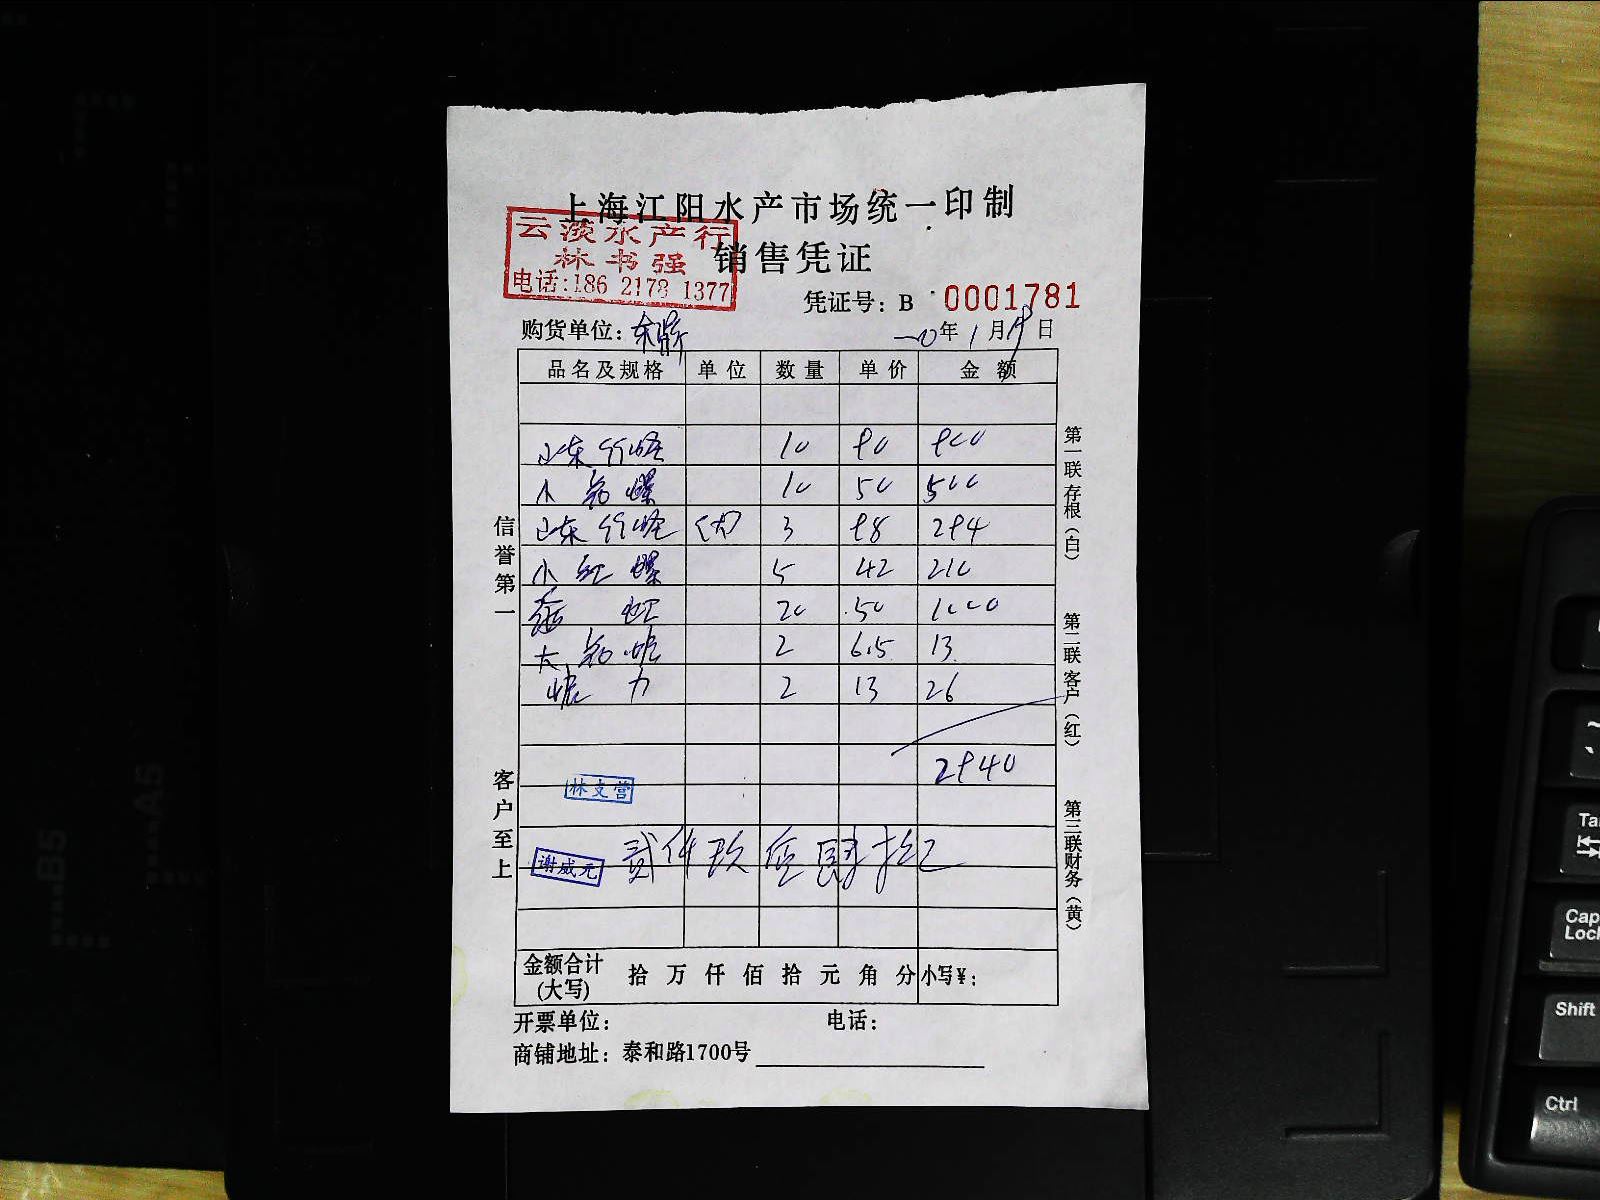 上海江阳水产市场统一印制
云淡水产行
林书强
电话:186 2178 1377
销售凭证
凭证号: B 0001781
购货单位:
二0年1月19日
品名及规格 单位 数量 单价 金额
山东竹蛏 10 90 900
小 螺 10 50 500
山东竹蛏 (肉) 3 98 294
小红螺 5 42 210
20 50 1000
大 2 6.5 13
力 2 13 26
2940
林支营
谢威元
贰仟玖佰肆拾元
金额合计(大写) 拾 万 仟 佰 拾 元 角 分 小写¥:
开票单位: 电话:
商铺地址: 泰和路1700号
信誉第一
客户至上
第一联 存根(白)
第二联 客户(红)
第三联 财务(黄)
B5
A5
Tab
Caps Lock
Shift
Ctrl